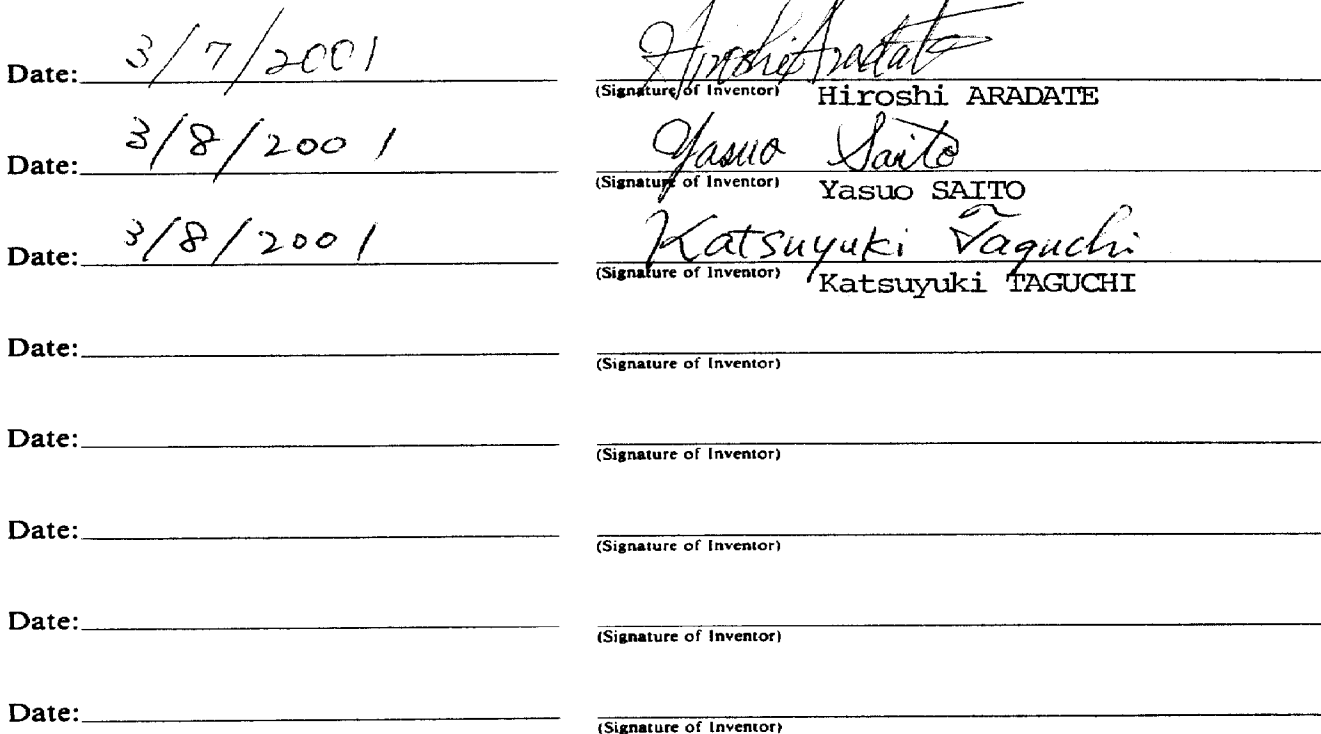 Date: 3/7/2001 Hiroshi Aradate
(Signature of Inventor) Hiroshi ARADATE
Date: 3/8/2001 Yasuo Saito
(Signature of Inventor) Yasuo SAITO
Date: 3/8/2001 Katsuyuki Taguchi
(Signature of Inventor) Katsuyuki TAGUCHI
Date:
(Signature of Inventor)
Date:
(Signature of Inventor)
Date:
(Signature of Inventor)
Date:
(Signature of Inventor)
Date:
(Signature of Inventor)